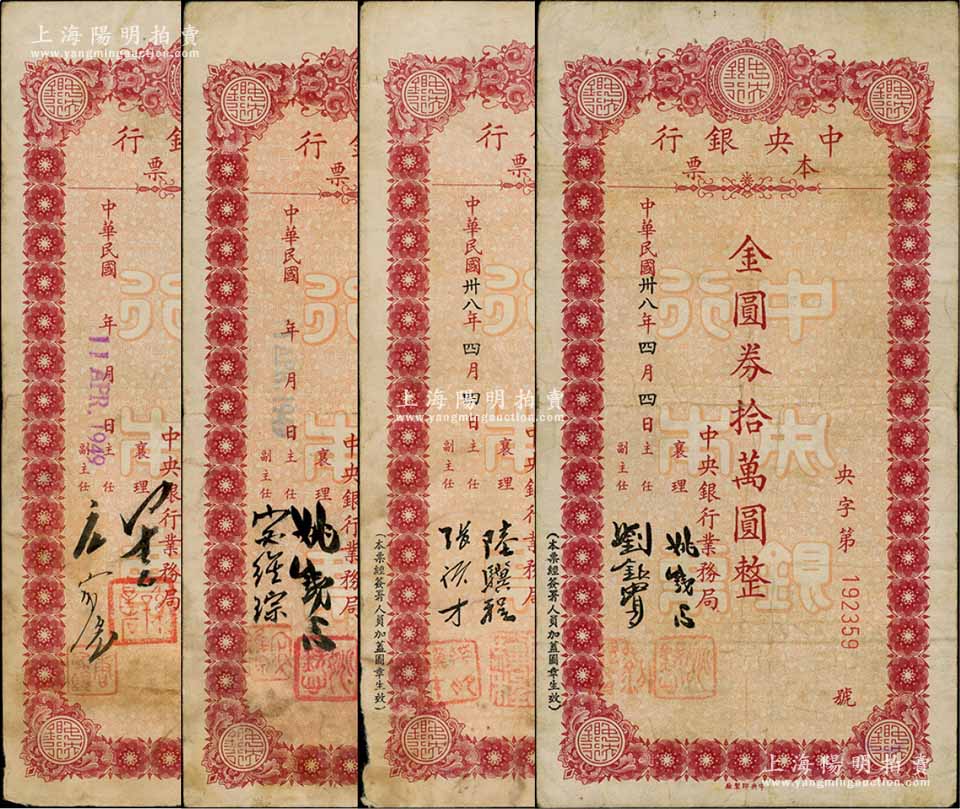 上海陽明拍賣
www.yangmingauction.com
行
票
中華民國 年 月 日
11 APR. 1949
襄理
主任
副主任
中央銀行業務局
行
票
中華民國 年 月 日
襄理
主任
副主任
中央銀行業務局
姚曉
宋維琮
行
票
中華民國卅八年四月四日
襄理
主任
副主任
陸驥程
才
(本票經簽署人員加蓋圖章生效)
上海陽明拍賣
www.yangmingauction.com
中央銀行
本票
金圓券拾萬圓整
央字第192359號
中華民國卅八年四月四日
中央銀行業務局
襄理
主任
副主任
劉
(本票經簽署人員加蓋圖章生效)
上海陽明拍賣
www.yangmingauction.com